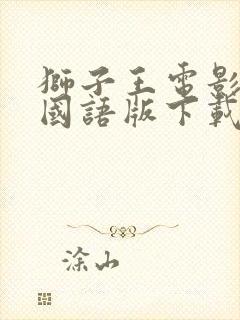 獅子王電影
國語版下載
涂山